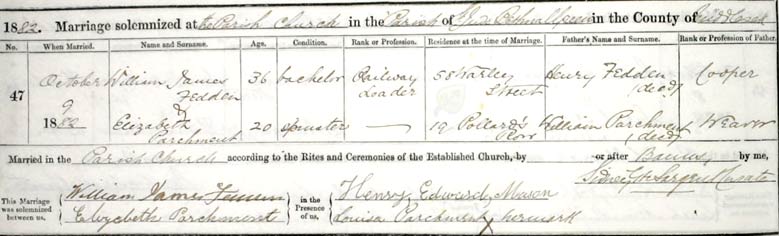 1882. Marriage solemnized at the Parish Church in the Parish of Bethnal Green in the County of Middlesex
No. When Married. Name and Surname. Age. Condition. Rank or Profession. Residence at the time of Marriage. Father's Name and Surname. Rank or Profession of Father.
47 October 9 1882
William James Fedden 36 bachelor Railway Loader 58 Harley Street Henry Fedden (decd) Cooper
Elizabeth Parchment 20 spinster — 19 Pollard's Row William Parchment (decd) Weaver
Married in the Parish Church according to the Rites and Ceremonies of the Established Church, by or after Banns, by me,
Curate
This Marriage was solemnized between us, William James in the Presence of us, Henry Edward Mason
Elizabeth Parchment Louisa Parchment X her mark